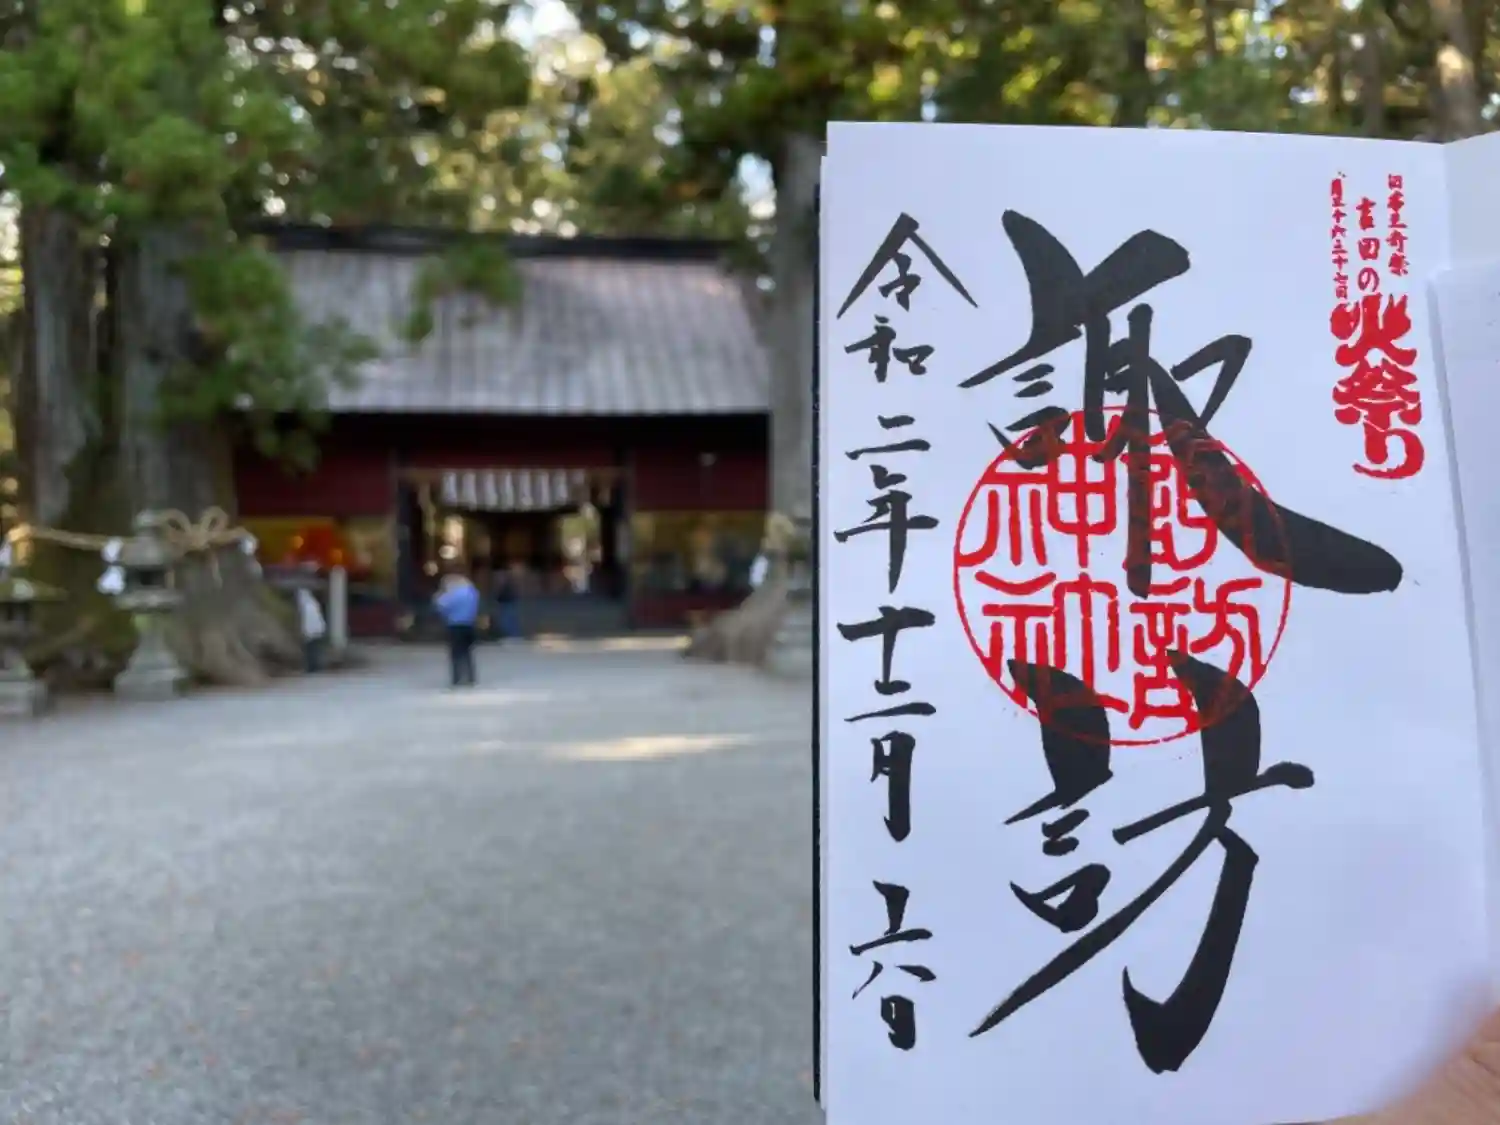 日本三奇祭
吉田の火祭り
八月二十六二十七日
諏訪
諏訪
神社
令和二年十二月六日